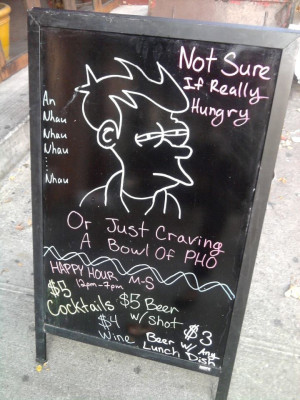 Not Sure
If Really
Hungry
An
Nhau
Nhau
Nhau
Nhau
Or Just Craving
A Bowl Of PHO
HAPPY HOUR M-S
12pm-7pm
$5
Cocktails
$5 Beer
w/ shot
$4
Wine
$3
Beer w/ Any
Lunch Dish